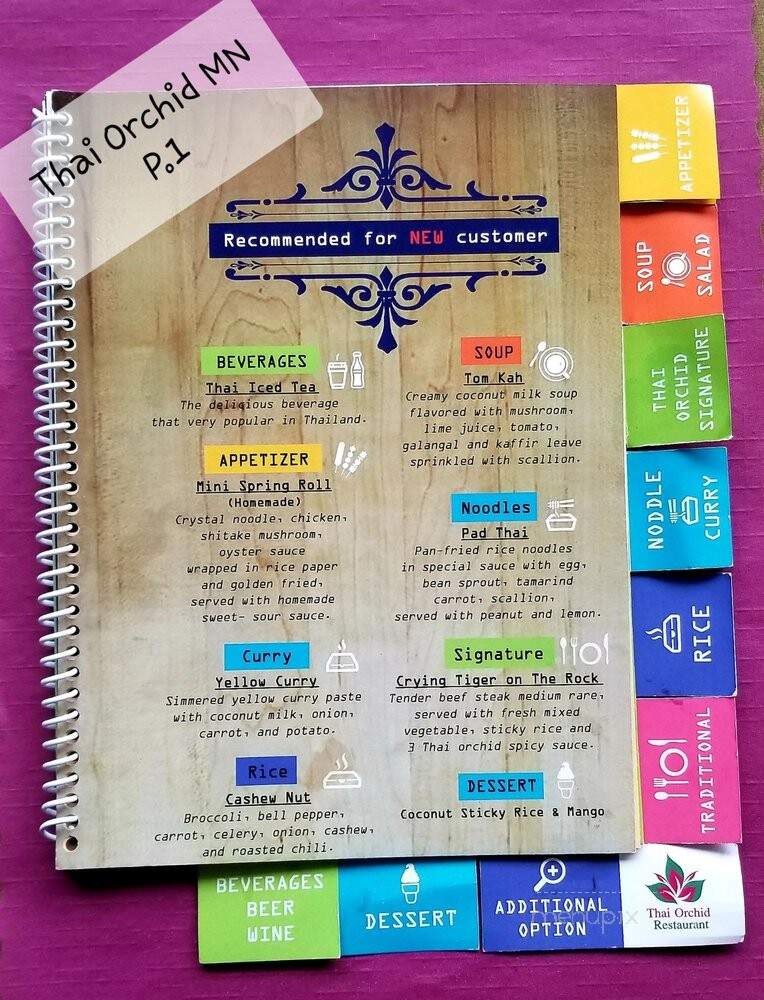 Thai Orchid MN
P.1
Recommended for NEW customer
BEVERAGES
Thai Iced Tea
The deligious beverage
that very popular in Thailand.
APPETIZER
Mini Spring Roll
(Homemade)
Crystal noodle, chicken,
shitake mushroom,
oyster sauce
wrapped in rice paper
and golden fried,
served with homemade
sweet- sour sauce.
Curry
Yellow Curry
Simmered yellow curry paste
with coconut milk, onion,
carrot, and potato.
Rice
Cashew Nut
Broccoli, bell pepper,
carrot, celery, onion, cashew,
and roasted chili.
SOUP
Tom Kah
Creamy coconut milk soup
flavored with mushroom,
lime juice, tomato,
galangal and kaffir leave
sprinkled with scallion.
Noodles
Pad Thai
Pan-fried rice noodles
in special sauce with egg,
bean sprout, tamarind
carrot, scallion,
served with peanut and lemon.
Signature
Crying Tiger on The Rock
Tender beef steak medium rare,
served with fresh mixed
vegetable, sticky rice and
3 Thai orchid spicy sauce.
DESSERT
Coconut Sticky Rice & Mango
APPETIZER
SOUP
SALAD
THAI
ORCHID
SIGNATURE
NODDLE
CURRY
RICE
TRADITIONAL
BEVERAGES
BEER
WINE
DESSERT
ADDITIONAL
OPTION
Thai Orchid
Restaurant
menupix